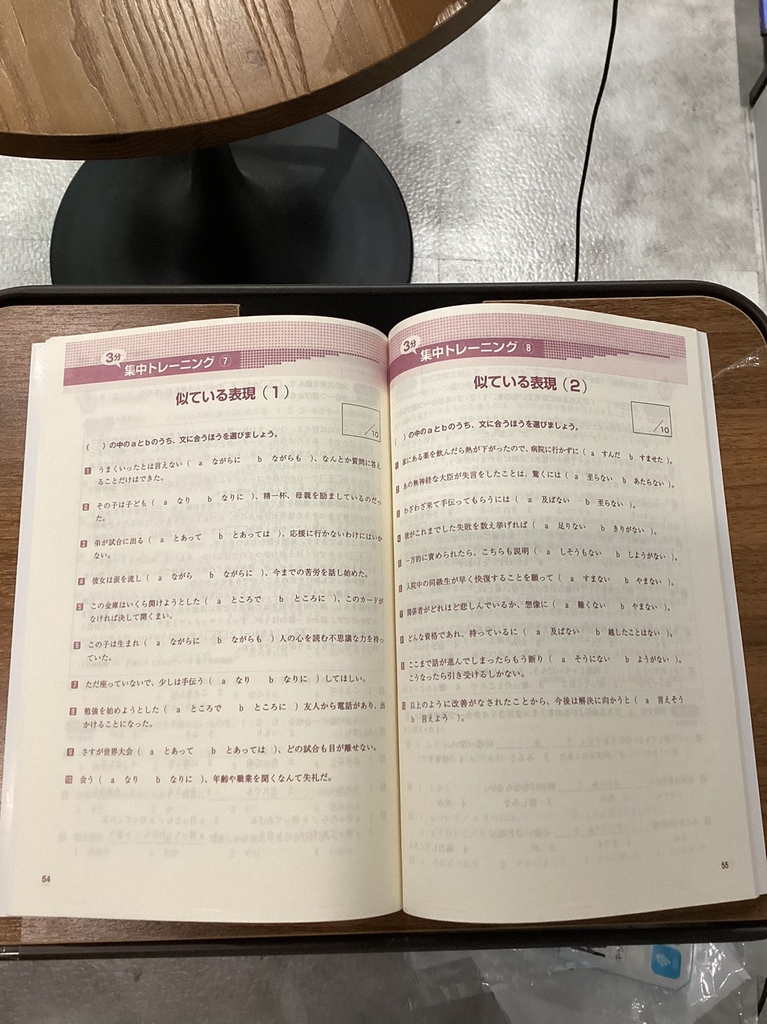 3分
集中トレーニング ⑦
似ている表現（1）
／10
（　）の中のaとbのうち、文に合うほうを選びましょう。
1 うまくいったとは言えない（ a ながらに　b ながらも ）、なんとか質問に答え
ることだけはできた。
2 その子は子ども（ a なり　b なりに ）、精一杯、母親を励ましているのだっ
た。
3 弟が試合に出る（ a とあって　b とあっては ）、応援に行かないわけにはいか
ない。
4 彼女は涙を流し（ a ながら　b ながらに ）、今までの苦労を話し始めた。
5 この金庫はいくら開けようとした（ a ところで　b ところに ）、このカードが
なければ決して開くまい。
6 この子は生まれ（ a ながらに　b ながらも ）人の心を読む不思議な力を持っ
ていた。
7 ただ座っていないで、少しは手伝う（ a なり　b なりに ）してほしい。
8 勉強を始めようとした（ a ところで　b ところに ）友人から電話があり、出
かけることになった。
9 さすが世界大会（ a とあって　b とあっては ）、どの試合も目が離せない。
10 会う（ a なり　b なりに ）、年齢や職業を聞くなんて失礼だ。
54
3分
集中トレーニング ⑧
似ている表現（2）
／10
）の中のaとbのうち、文に合うほうを選びましょう。
家にある薬を飲んだら熱が下がったので、病院に行かずに（ a すんだ　b すませた ）。
あの無神経な大臣が失言をしたことは、驚くには（ a 至らない　b あたらない ）。
わざわざ来て手伝ってもらうには（ a 及ばない　b 至らない ）。
彼がこれまでした失敗を数え挙げれば（ a 足りない　b きりがない ）。
一方的に責められたら、こちらも説明（ a しそうもない　b しようがない ）。
入院中の同級生が早く快復することを願って（ a すまない　b やまない ）。
関係者がどれほど悲しんでいるか、想像に（ a 難くない　b やまない ）。
どんな資格であれ、持っているに（ a 及ばない　b 越したことはない ）。
ここまで話が進んでしまったらもう断り（ a そうにない　b ようがない ）。
こうなったら引き受けるしかない。
以上のように改善がなされたことから、今後は解決に向かうと（ a 言えそう
b 言えよう ）。
55